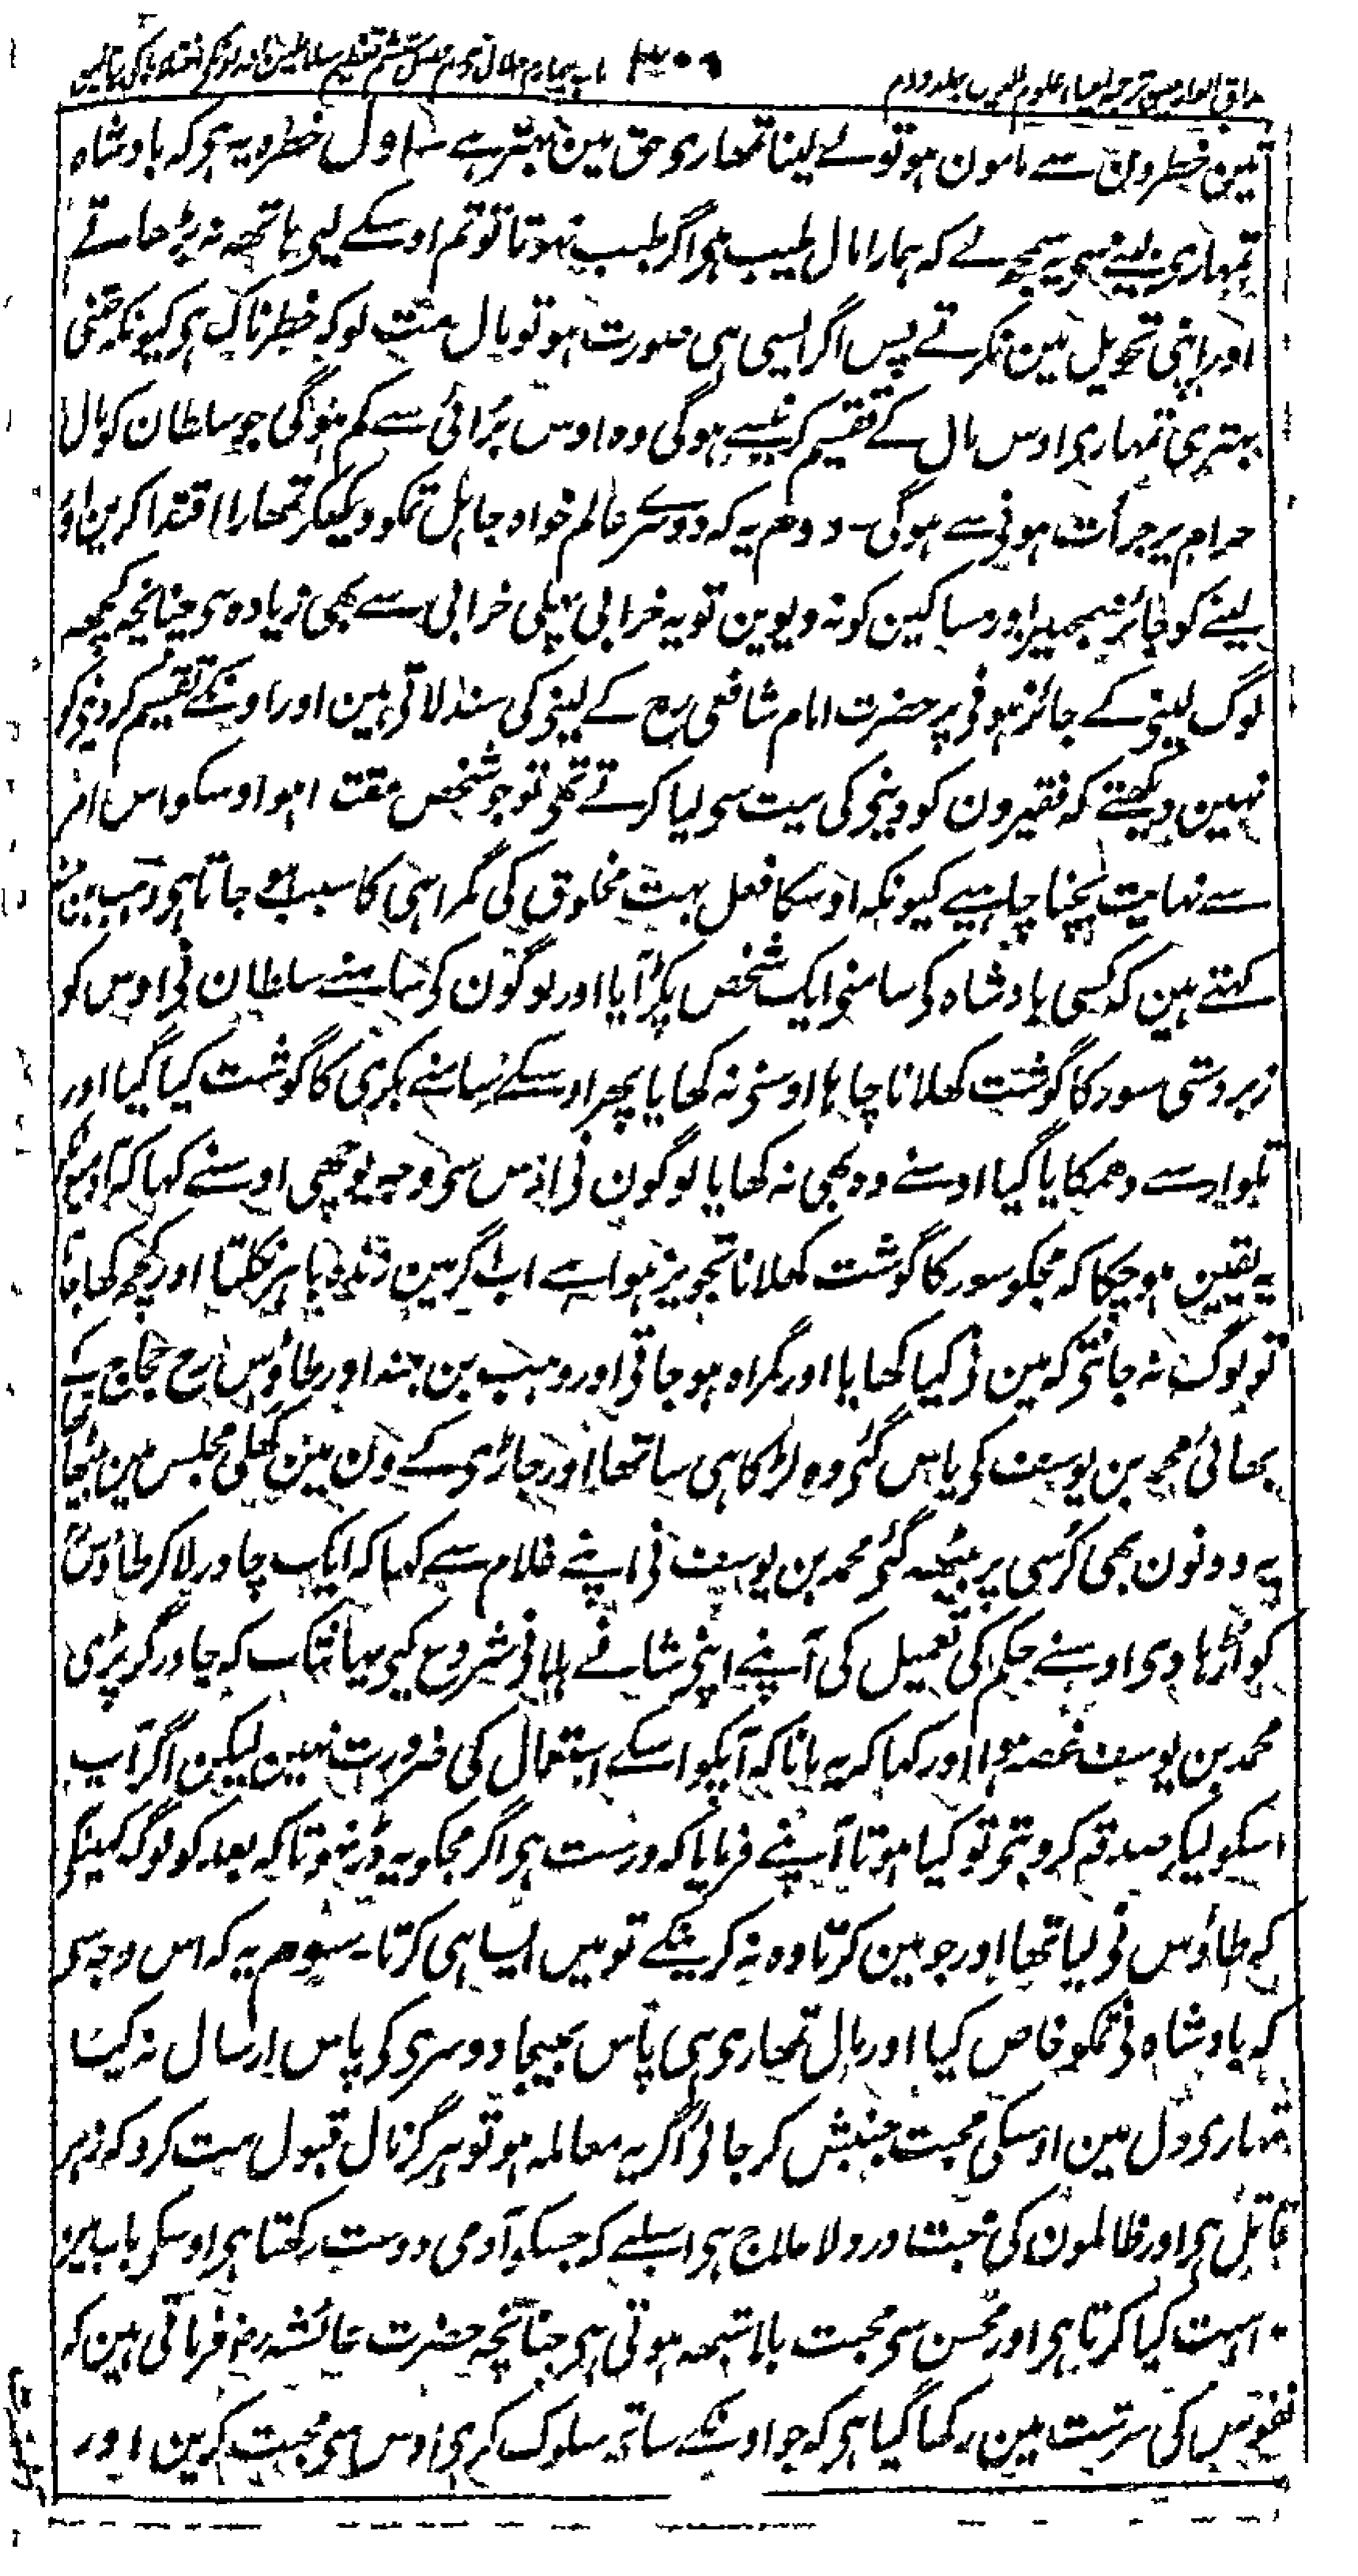 مذاق العارفین ترجمہ احیاء علوم الدین جلد دوم
تین خطرون سے مامون ہو تو لے لینا تمھاری حق مین بہتر ہے اول خطرہ یہ ہی کہ بادشاہ
تمہاری لینے سی یہ سمجھ لے کہ ہمارا مال طیب ہی اگر طیب نہوتا تو تم اوسکے لیی ہاتھہ نہ بڑھاتے
اور اپنی تحویل مین نکرتے پس اگر ایسی ہی صورت ہو تو مال مت لو کہ خطرناک ہی کیونکہ جتنی
بہتری تمہاری اوس مال کے تقسیم کرنیسے ہوگی وہ اوس برائی سے کم ہوگی جو سلطان کو مال
حرام پر جرأت ہونی سے ہوگی۔ دوم یہ کہ دوسرے عالم خواہ جاہل تمکو دیکھکر تمھارا اقتدا کرین او
لینے کو جائز سمجھیں اور مساکین کو نہ دیوین تو یہ خرابی پہلی خرابی سے بھی زیادہ ہی چنانچہ کچھہ
لوگ لینی کے جائز ہونی پر حضرت امام شافعی رح کے لینی کی سند لاتی ہین اور اونکے تقسیم کر دینی کو
نہین دیکھتے کہ فقیرون کو دینی کی نیت سی لیا کرتے تھی تو جو شخص مقتدا ہو اوسکو اس امر
سے نہایت بچنا چاہیے کیونکہ اوسکا فعل بہت مخلوق کی گمراہی کا سبب ہو جاتا ہی وہب بن منبہ
کہتے ہین کہ کسی بادشاہ کی سامنی ایک شخص پکڑ آیا اور لوگون کی سامنے سلطان نی اوس کو
زبردستی سور کا گوشت کھلانا چاہا اوسنی نہ کھایا پھر اوسکے سامنے بکری کا گوشت کیا گیا اور
تلوار سے دھمکایا گیا اوسنے وہ بھی نہ کھایا لوگون نی اوس سی وجہ پوچھی اوسنے کہا کہ آدمیونکو
یہ یقین ہو چکا کہ مجکو سور کا گوشت کھلانا تجویز ہوا ہے اب اگر مین زندہ باہر نکلتا اور کچھہ کھا جاتا
تو لوگ نہ جانتی کہ مین نی کیا کھایا اور گمراہ ہو جاتی اور وہب بن منبہ اور طاؤس رح حجاج کے
بھائی محمد بن یوسف کی پاس گئی وہ لڑکا ہی سا تھا اور جاڑی کے دن مین کھلی مجلس مین بیٹھا تھا
یہ دونون بھی کرسی پر بیٹھہ گئی محمد بن یوسف نی اپنے غلام سے کہا کہ ایک چادر لا کر طاؤس
کو اڑھا دی اوسنے حکم کی تعمیل کی آپنے اپنی شانے ہلانی شروع کیی یہانتک کہ چادر گر پڑی
محمد بن یوسف غصہ ہوا اور کہا کہ یہ مانا کہ آپکو اسکے استعمال کی ضرورت نہین لیکن اگر آپ
اسکو لیکر صدقہ کر دیتی تو کیا ہوتا آپنے فرمایا کہ درست ہی اگر مجکو یہ ڈر نہوتا کہ بعد کو لوگ کہینگی
کہ طاؤس نی لیا تھا اور جو مین کرتا وہ نہ کرینگے تو میں ایسا ہی کرتا۔ سوم یہ کہ اس وجہ سی
کہ بادشاہ نی تمکو خاص کیا اور مال تمھاری ہی پاس بھیجا دوسری کی پاس ارسال نہ کیا
تمہاری دل مین اوسکی محبت جنبش کر جائی اگر یہ معاملہ ہو تو ہرگز مال قبول مت کرو کہ زہر
قاتل ہی اور ظالمون کی محبت درد لا علاج ہی اسلیے کہ جسکو آدمی دوست رکھتا ہی اوسکی باب مین
کیا کرتا ہی اور محسن سی محبت بالاشبہہ ہوتی ہی چنانچہ حضرت عائشہ رض فرماتی ہین کہ
نفوس کی سرشت مین رکھا گیا ہی کہ جو اونکے ساتھہ سلوک کری اوس سی محبت کرین اور